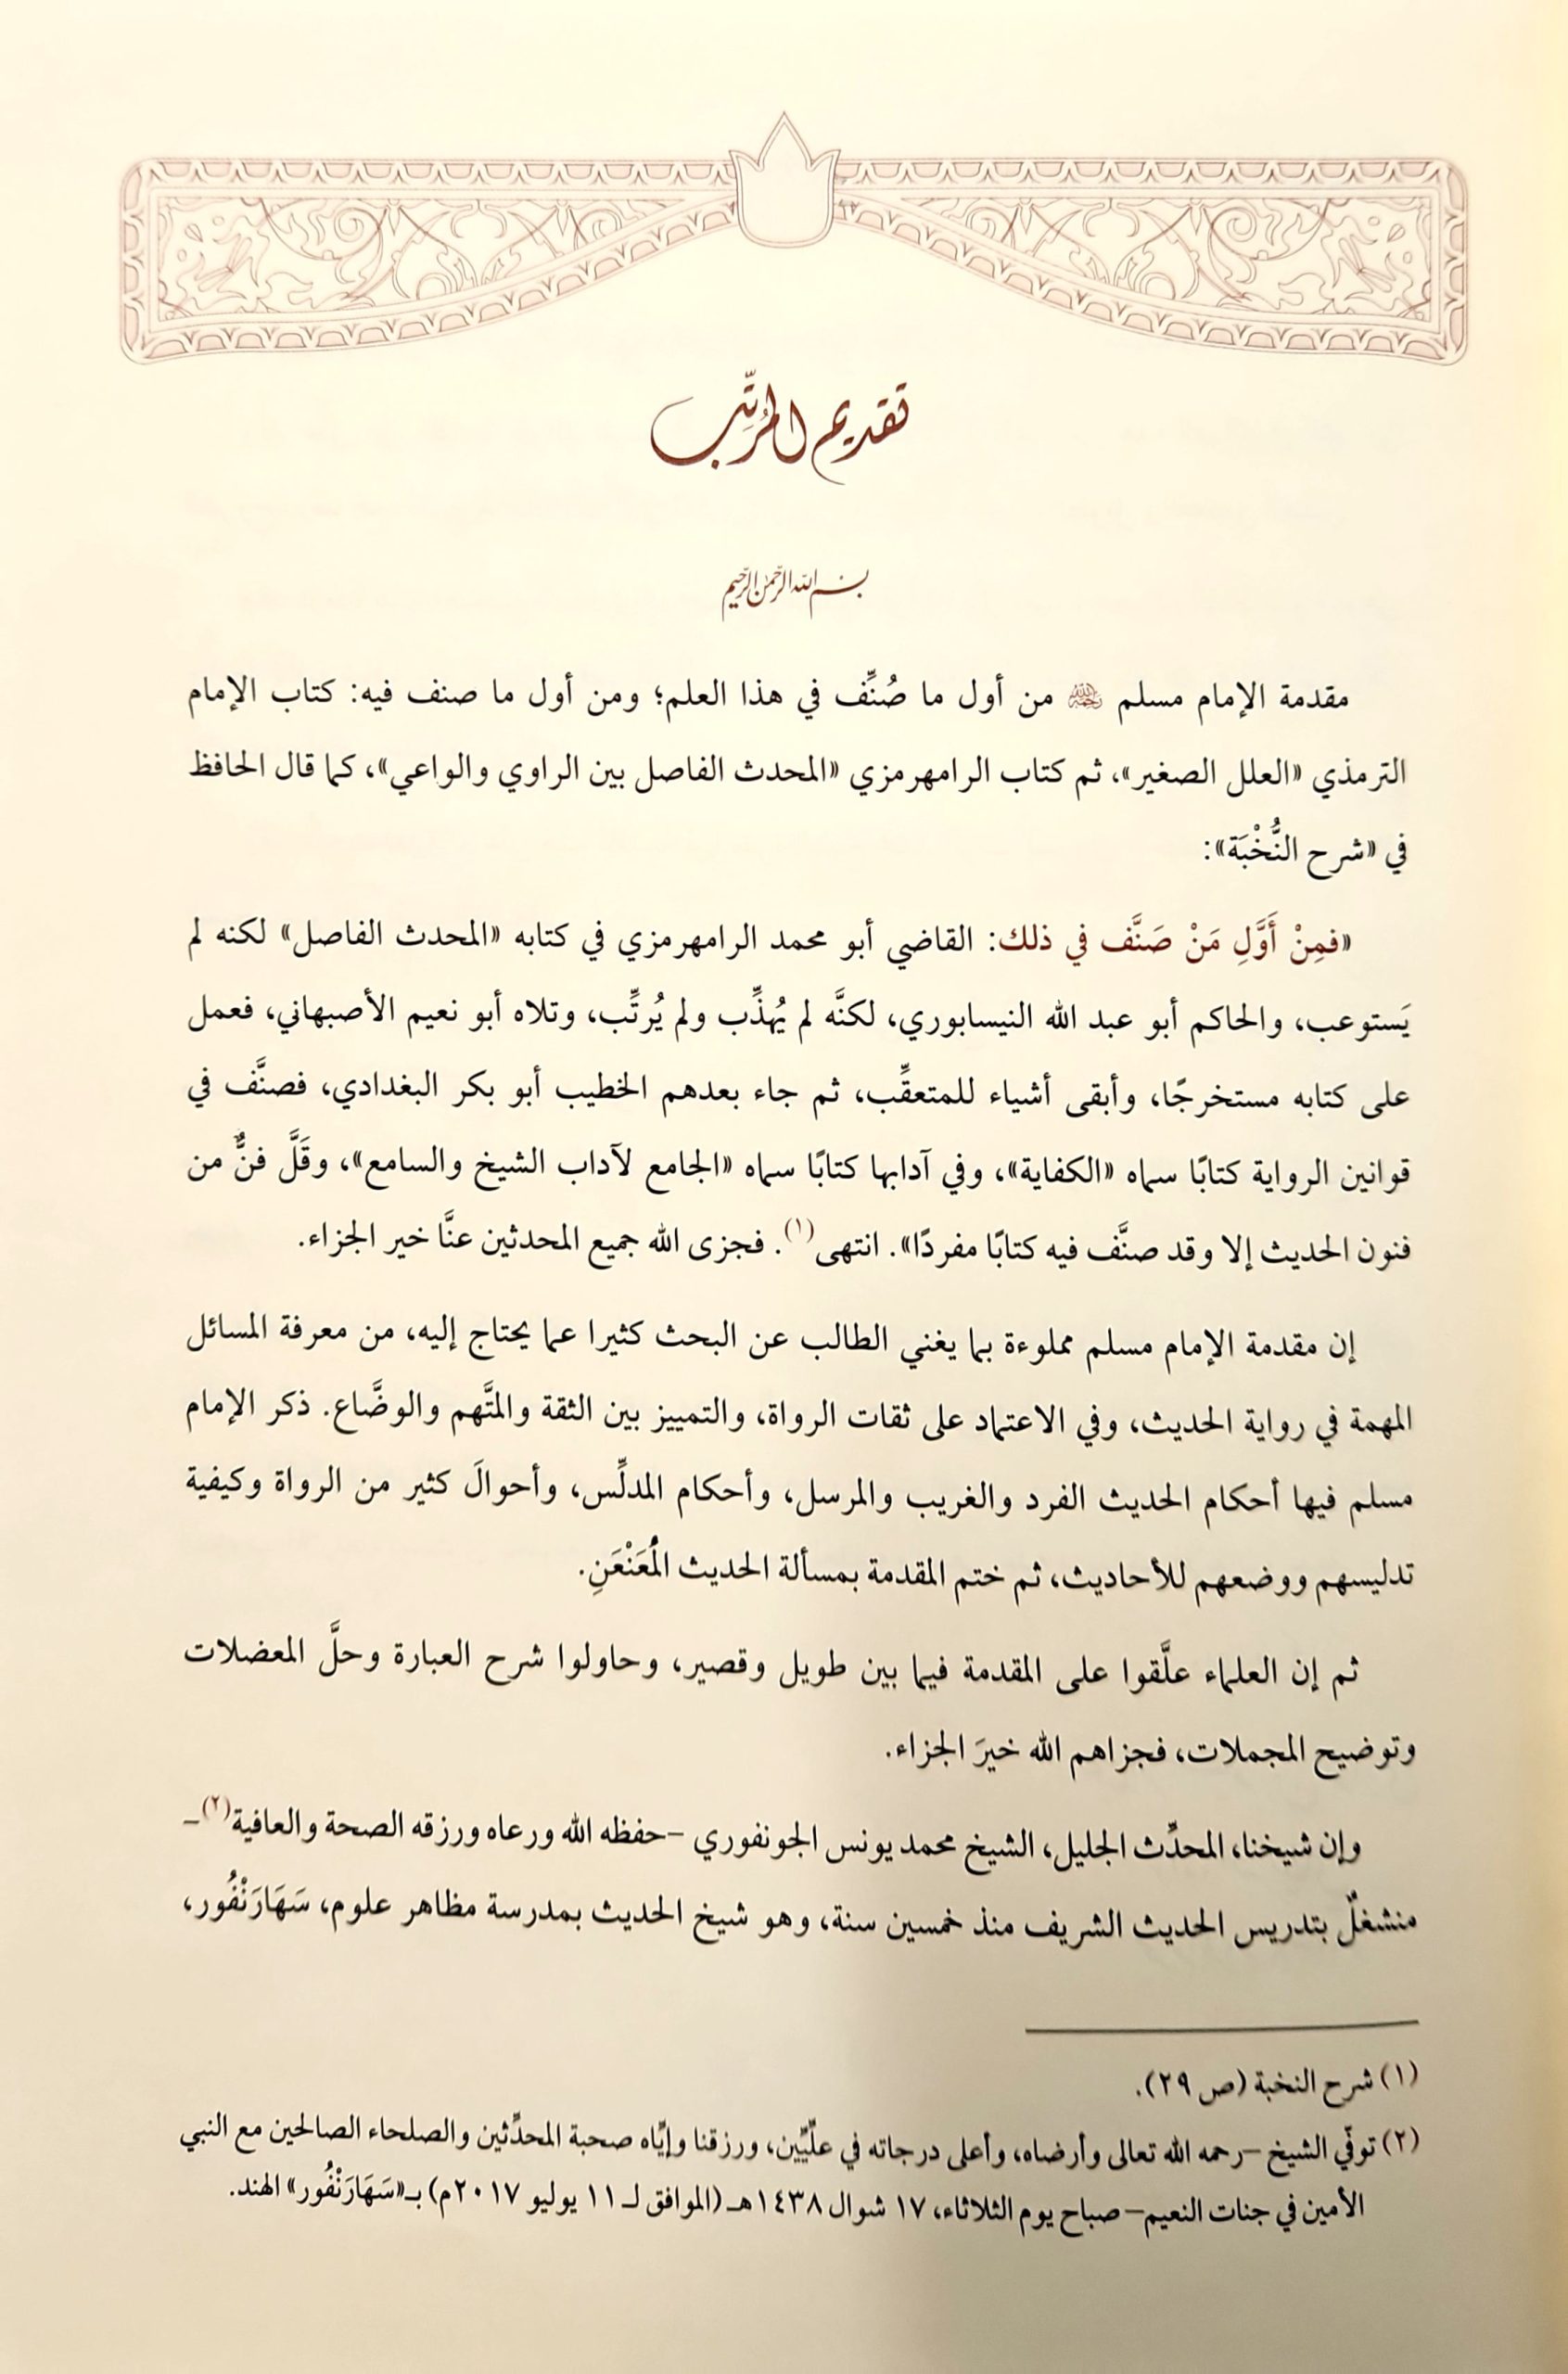 تقديم المُرتِّب
بسم الله الرحمن الرحيم
مقدمة الإمام مسلم رحمه الله من أول ما صُنِّف في هذا العلم؛ ومن أول ما صنف فيه: كتاب الإمام
الترمذي «العلل الصغير»، ثم كتاب الرامهرمزي «المحدث الفاصل بين الراوي والواعي»، كما قال الحافظ
في «شرح النُّخْبَة»:
«فمِنْ أَوَّلِ مَنْ صَنَّف في ذلك: القاضي أبو محمد الرامهرمزي في كتابه «المحدث الفاصل» لكنه لم
يَستوعب، والحاكم أبو عبد الله النيسابوري، لكنَّه لم يُهذِّب ولم يُرتِّب، وتلاه أبو نعيم الأصبهاني، فعمل
على كتابه مستخرجًا، وأبقى أشياء للمتعقِّب، ثم جاء بعدهم الخطيب أبو بكر البغدادي، فصنَّف في
قوانين الرواية كتابًا سماه «الكفاية»، وفي آدابها كتابًا سماه «الجامع لآداب الشيخ والسامع»، وقَلَّ فنٌّ من
فنون الحديث إلا وقد صنَّف فيه كتابًا مفردًا». انتهى(١). فجزى الله جميع المحدثين عنَّا خير الجزاء.
إن مقدمة الإمام مسلم مملوءة بما يغني الطالب عن البحث كثيرا عما يحتاج إليه، من معرفة المسائل
المهمة في رواية الحديث، وفي الاعتماد على ثقات الرواة، والتمييز بين الثقة والمتَّهم والوضَّاع. ذكر الإمام
مسلم فيها أحكام الحديث الفرد والغريب والمرسل، وأحكام المدلِّس، وأحوالَ كثير من الرواة وكيفية
تدليسهم ووضعهم للأحاديث، ثم ختم المقدمة بمسألة الحديث المُعَنْعَنِ.
ثم إن العلماء علَّقوا على المقدمة فيما بين طويل وقصير، وحاولوا شرح العبارة وحلَّ المعضلات
وتوضيح المجملات، فجزاهم الله خيرَ الجزاء.
وإن شيخنا، المحدِّث الجليل، الشيخ محمد يونس الجونفوري –حفظه الله ورعاه ورزقه الصحة والعافية(٢)–
منشغلٌ بتدريس الحديث الشريف منذ خمسين سنة، وهو شيخ الحديث بمدرسة مظاهر علوم، سَهَارَنْفُور،
(١) شرح النخبة (ص ٢٩).
(٢) توفّي الشيخ –رحمه الله تعالى وأرضاه، وأعلى درجاته في علّيِّين، ورزقنا وإيَّاه صحبة المحدِّثين والصلحاء الصالحين مع النبي
الأمين في جنات النعيم– صباح يوم الثلاثاء، ١٧ شوال ١٤٣٨هـ (الموافق لـ ١١ يوليو ٢٠١٧م) بـ«سَهَارَنْفُور» الهند.